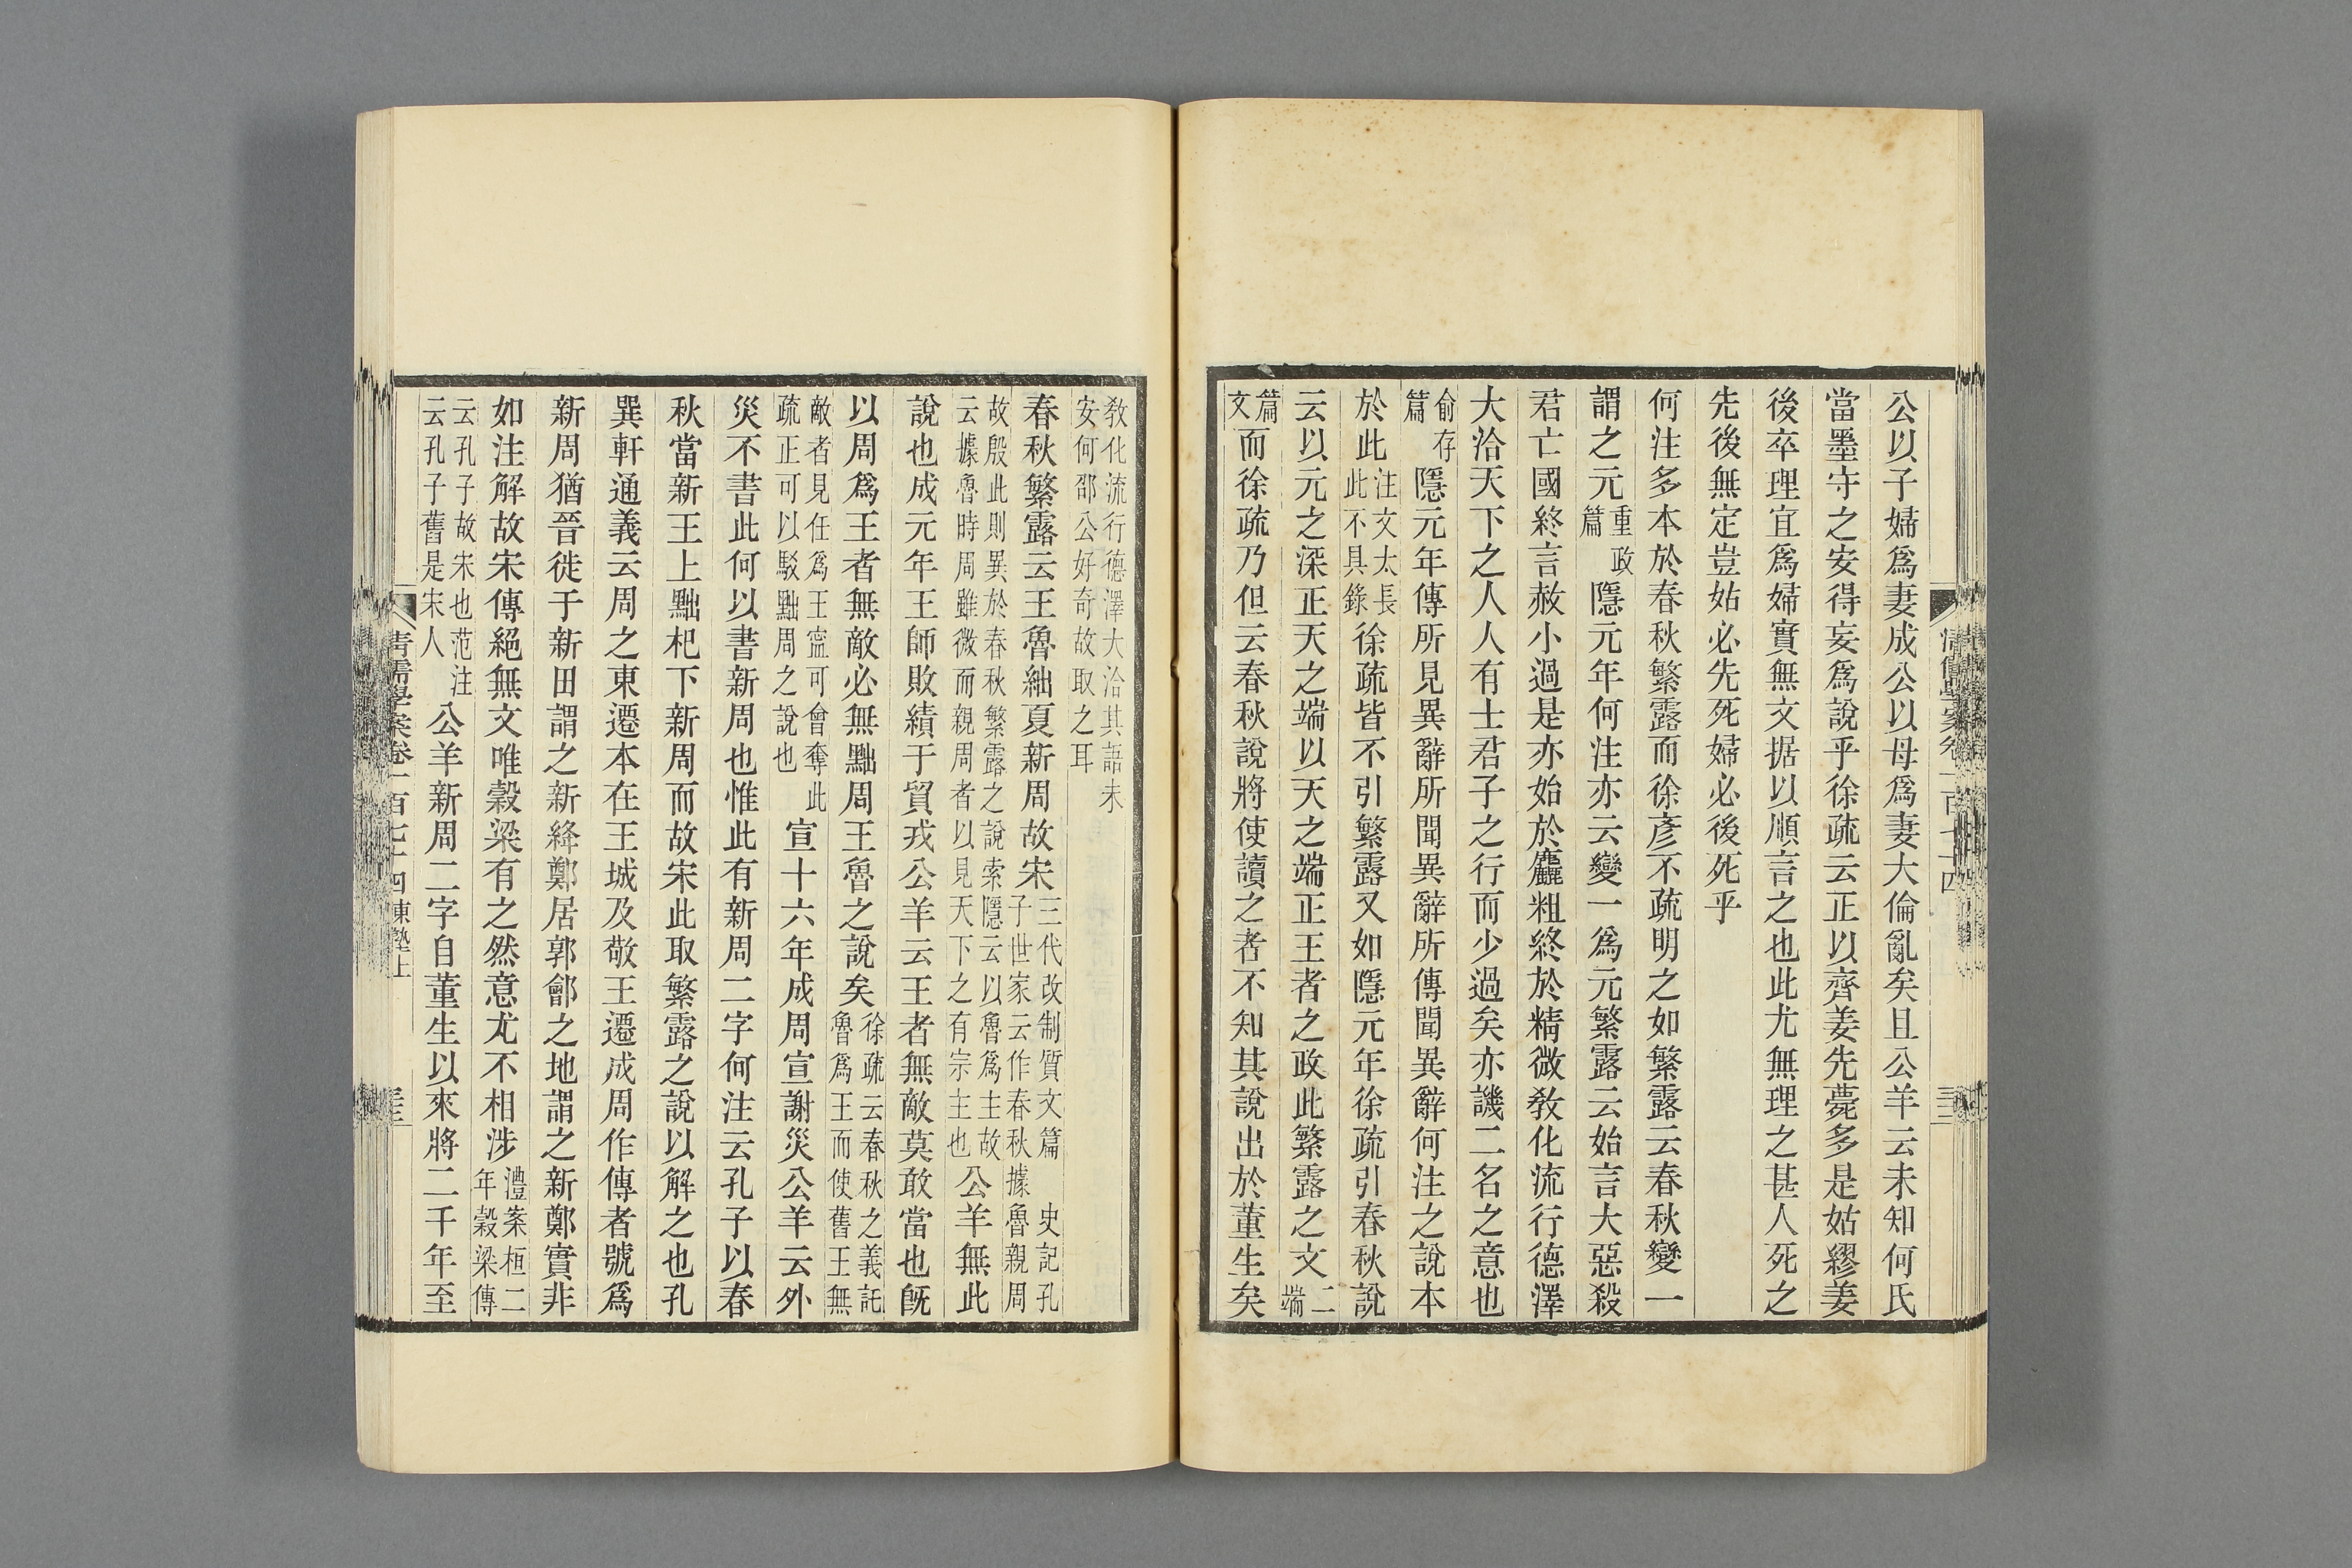 公以子婦爲妻成公以母爲妻大倫亂矣且公羊云未知何氏
當墨守之安得妄爲說乎徐疏云正以齊姜先薨多是姑繆姜
後卒理宜爲婦實無文据以順言之也此尤無理之甚人死之
先後無定豈姑必先死婦必後死乎
何注多本於春秋繁露而徐彥不疏明之如繁露云春秋變一
謂之元重政篇隱元年何注亦云變一爲元繁露云始言大惡殺
君亡國終言赦小過是亦始於麤粗終於精微敎化流行德澤
大洽天下之人人有士君子之行而少過矣亦譏二名之意也
俞存篇隱元年傳所見異辭所聞異辭所傳聞異辭何注之說本
於此注文太長此不具錄徐疏皆不引繁露又如隱元年徐疏引春秋說
云以元之深正天之端以天之端正王者之政此繁露之文二端
篇文而徐疏乃但云春秋說將使讀之者不知其說出於董生矣
敎化流行德澤大洽其語未安何邵公好奇故取之耳
春秋繁露云王魯紬夏新周故宋三代改制質文篇 史記孔子世家云作春秋據魯親周
故殷此則異於春秋繁露之說索隱云以魯爲主故云據魯時周雖微而親周者以見天下之有宗主也公羊無此
說也成元年王師敗績于貿戎公羊云王者無敵莫敢當也旣
以周爲王者無敵必無黜周王魯之說矣徐疏云春秋之義託魯爲王而使舊王無
敵者見任爲王寧可會奪此疏正可以駁黜周之說也宣十六年成周宣謝災公羊云外
災不書此何以書新周也惟此有新周二字何注云孔子以春
秋當新王上黜杞下新周而故宋此取繁露之說以解之也孔
巽軒通義云周之東遷本在王城及敬王遷成周作傳者號爲
新周猶晉徙于新田謂之新絳鄭居郭鄶之地謂之新鄭實非
如注解故宋傳絕無文唯穀梁有之然意尤不相涉澧案桓二年穀梁傳
云孔子故宋也范注云孔子舊是宋人公羊新周二字自董生以來將二千年至
清儒學案卷一百七十四東塾上